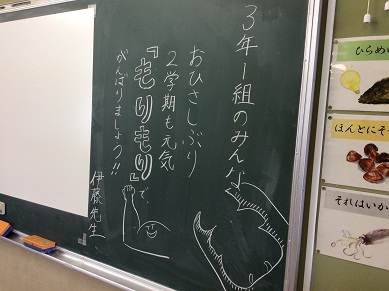 3年1組のみんな
おひさしぶり
2学期も元気
『もりもり』で、
がんばりましょう!!
伊藤先生
ひらめ
ほんとにそ
それはいか